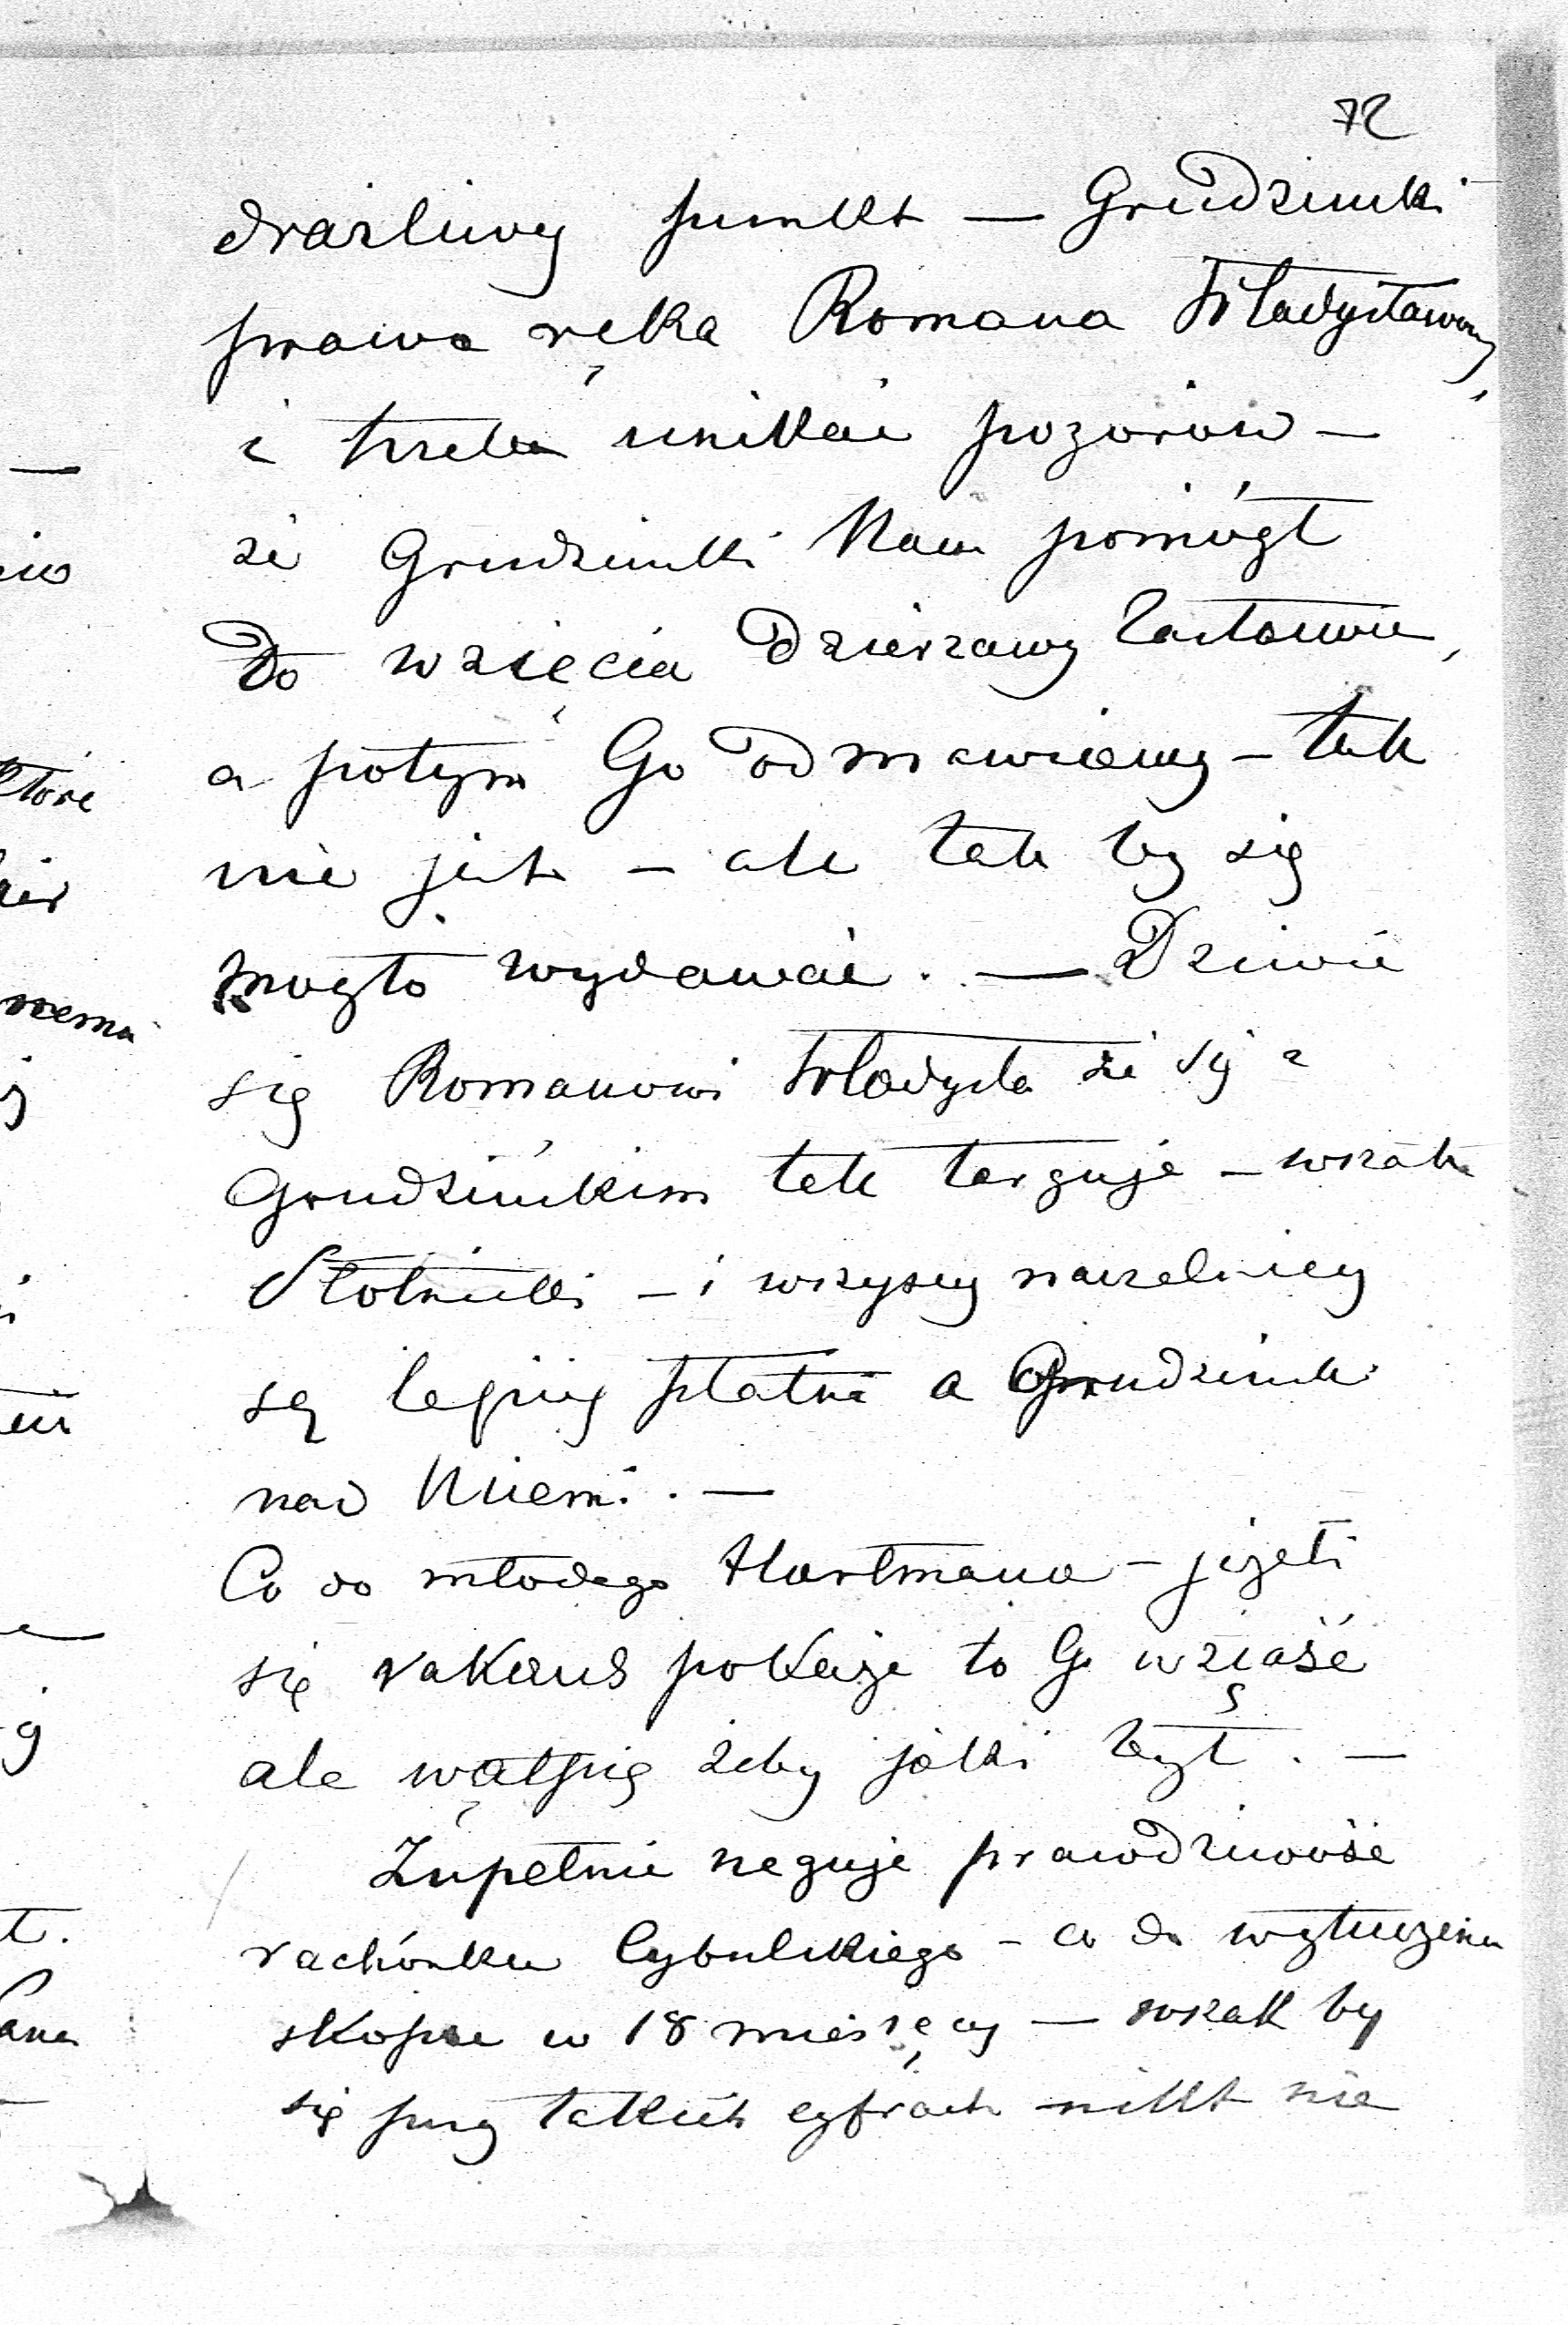 72
drażliwy punkt — Grudziński
prawa ręka Romana Władysławowy,
i trzeba unikać pozorów —
że Grudziński Nam pomógł
do wzięcia Dzierżawy
a potym Go odmawiamy — tak
nie jest — ale tak by się
mogło wydawać. — Dziwię
się Romanowi Władysła że się z
Grudzińkim tak targuje — wszak
Stolnicki — i wszyscy naczelnicy
są lepiej płatni a Grudziński
nad Niemi. —
Co do młodego Hartmana — jeżeli
się vakans pokaże to Go wziąść
ale wątpię żeby jaki był. —
Zupełnie neguję prawdziwość
rachónku Cybulskiego — co do wytuczenia
skopa w 18 miesięcy — wszak by
się przy takich cyfrach nikt nie